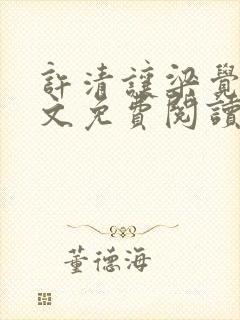 許清讓梁覺
文免費閱讀
董德海